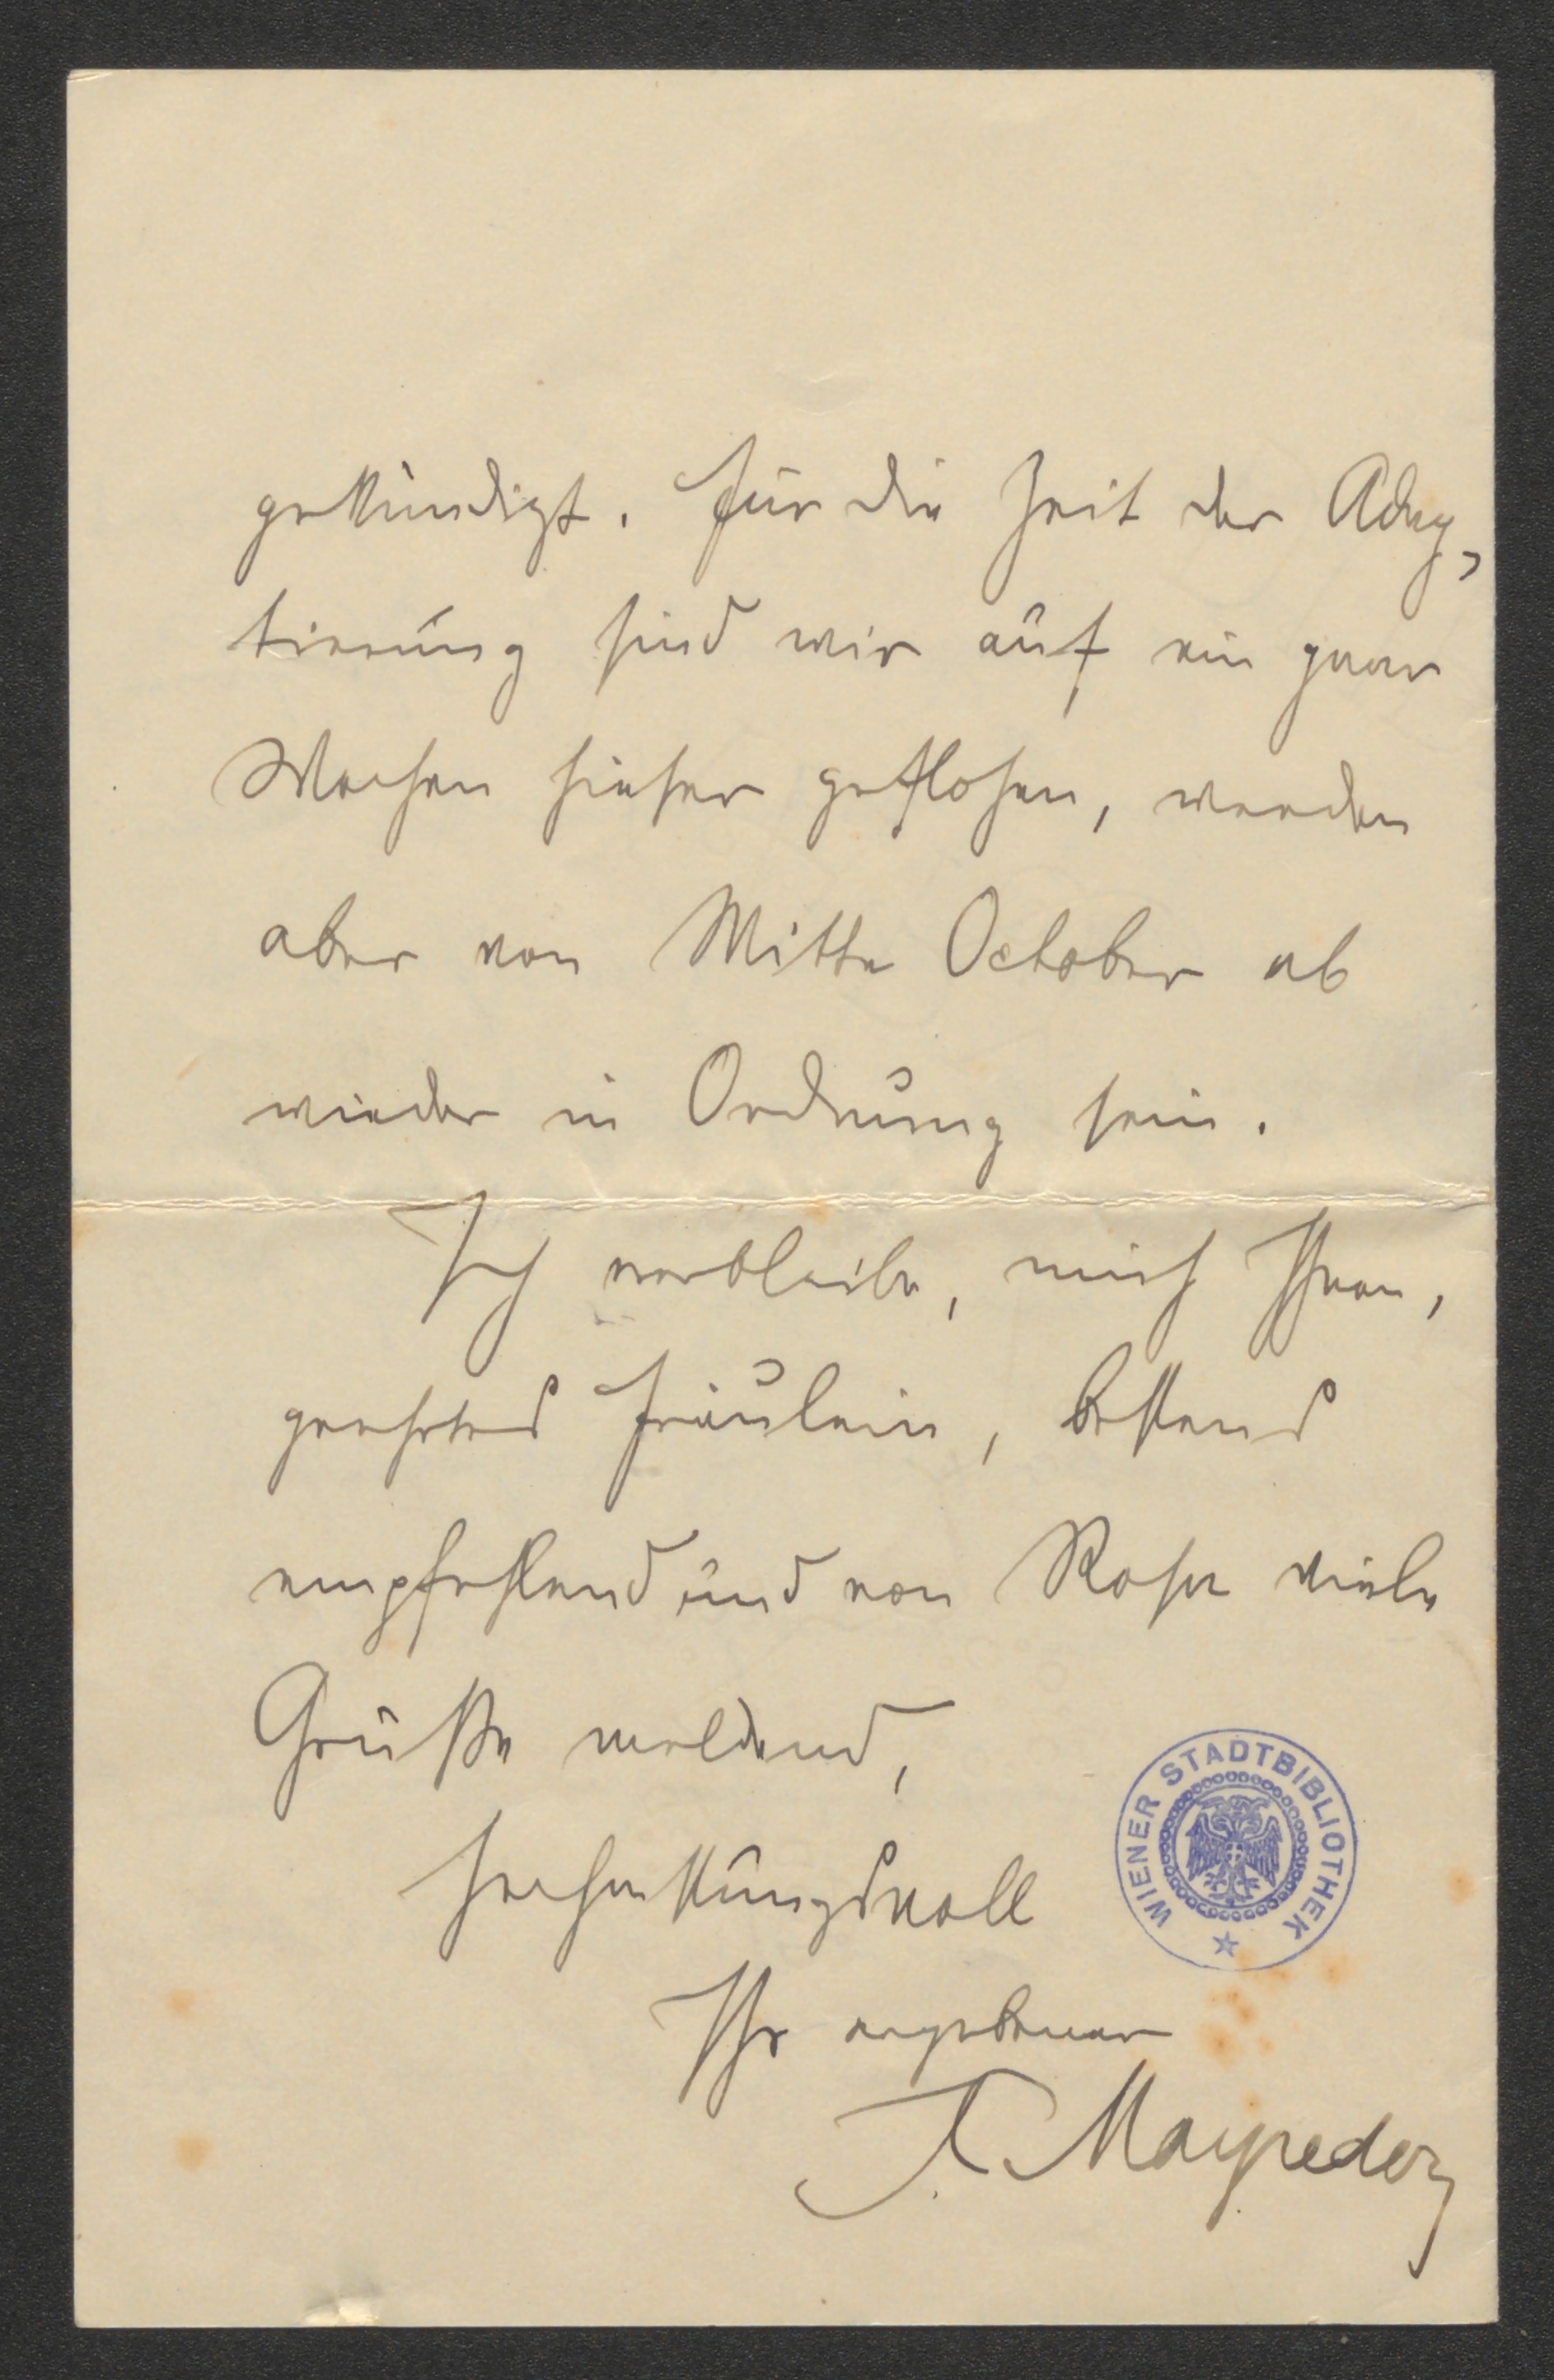 gekündigt. Für die Zeit der Adap-
tierung sind wir auf ein paar
Wochen hieher geflohen, werden
aber von Mitte October ab
wieder in Ordnung sein.
Ich verbleibe, mich Ihnen,
geehrtes Fräulein, bestens
empfehlend und von Rosa viele
Grüße meldend,
hochachtungsvoll
Ihr ergebener
K. Mayreder
WIENER STADTBIBLIOTHEK